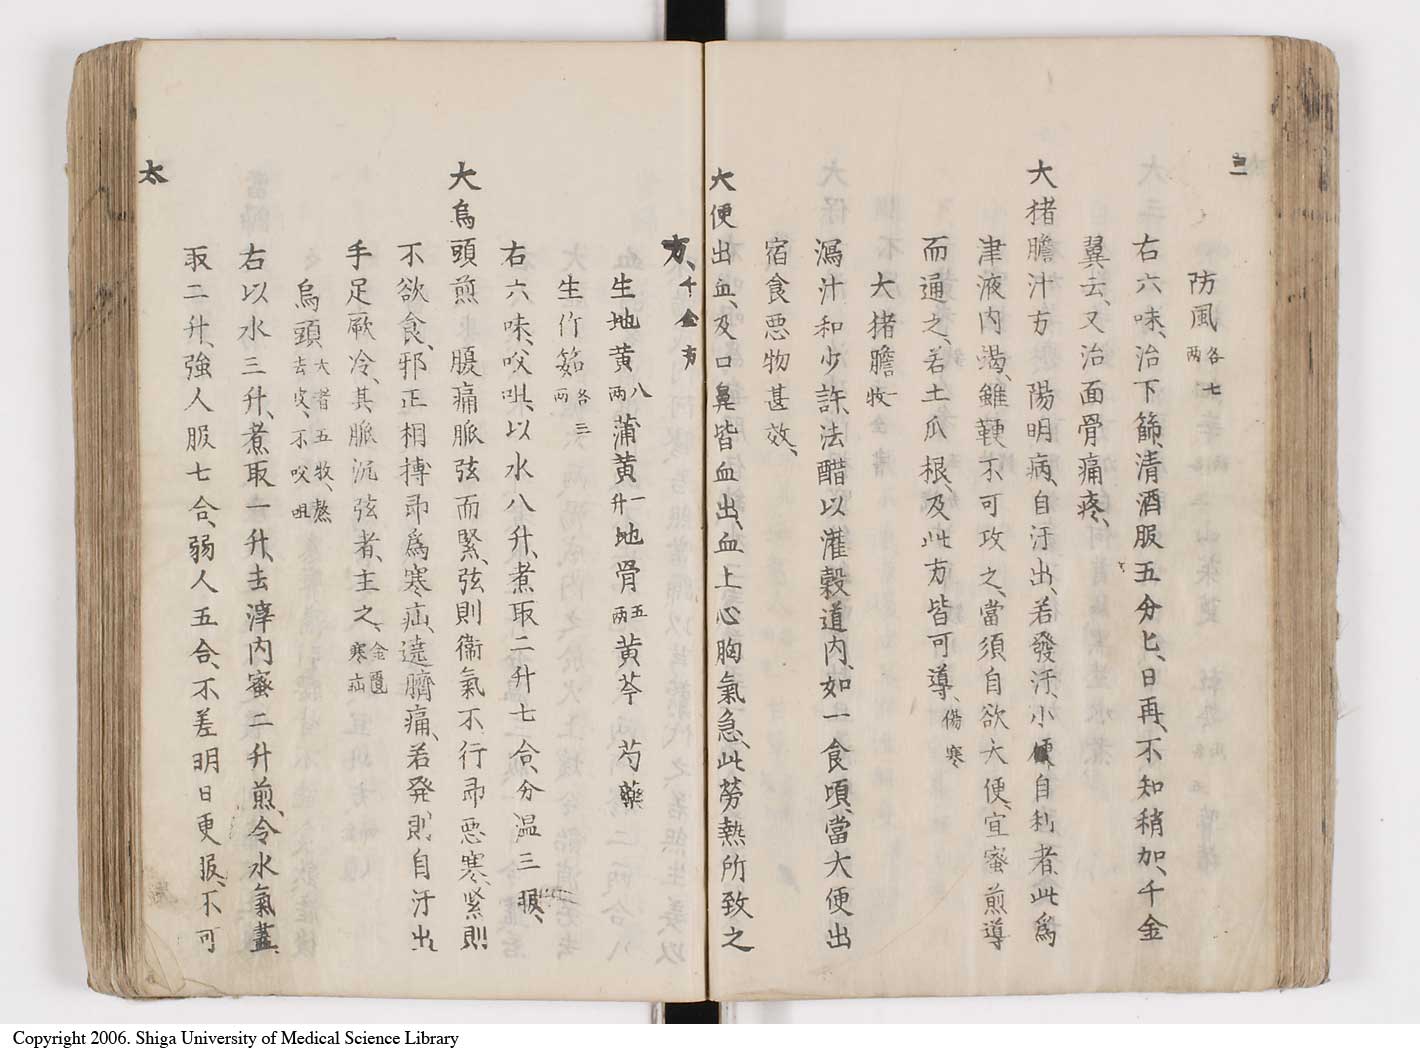 三
防風各七两
右六味、治下篩、清酒服五分匕、日再、不知稍加、千金
翼云、又治面骨痛疼、
大猪膽汁方　陽明病、自汗出、若發汗、小便自利者、此爲
津液内竭、雖鞕不可攻之、當須自欲大便、宜蜜煎導
而通之、若土瓜根、及此方皆可導、傷寒
大猪膽一枚
瀉汁和少許法醋以灌穀道内、如一食頃、當大便出
宿食悪物甚效、
大便出血、及口鼻皆血出、血上心胸氣急、此勞熱所致之
方、千金方
生地黄八两　蒲黄一升　地骨五两　黄芩　芍藥
生竹茹各三两
右六味、㕮咀、以水八升、煮取二升七合、分温三服、
大烏頭煎　腹痛脈弦而緊、弦則衞氣不行即悪寒、緊則
不欲食、邪正相摶即爲寒疝、遶臍痛、若発則自汗出
手足厥冷、其脈沉弦者、主之、金匱寒疝
烏頭大者五枚、熬去皮、不㕮咀
右以水三升、煮取一升、去滓内蜜二升煎、令水氣盡、
取二升、強人服七合、弱人五合、不差明日更服、不可
太
Copyright 2006. Shiga University of Medical Science Library